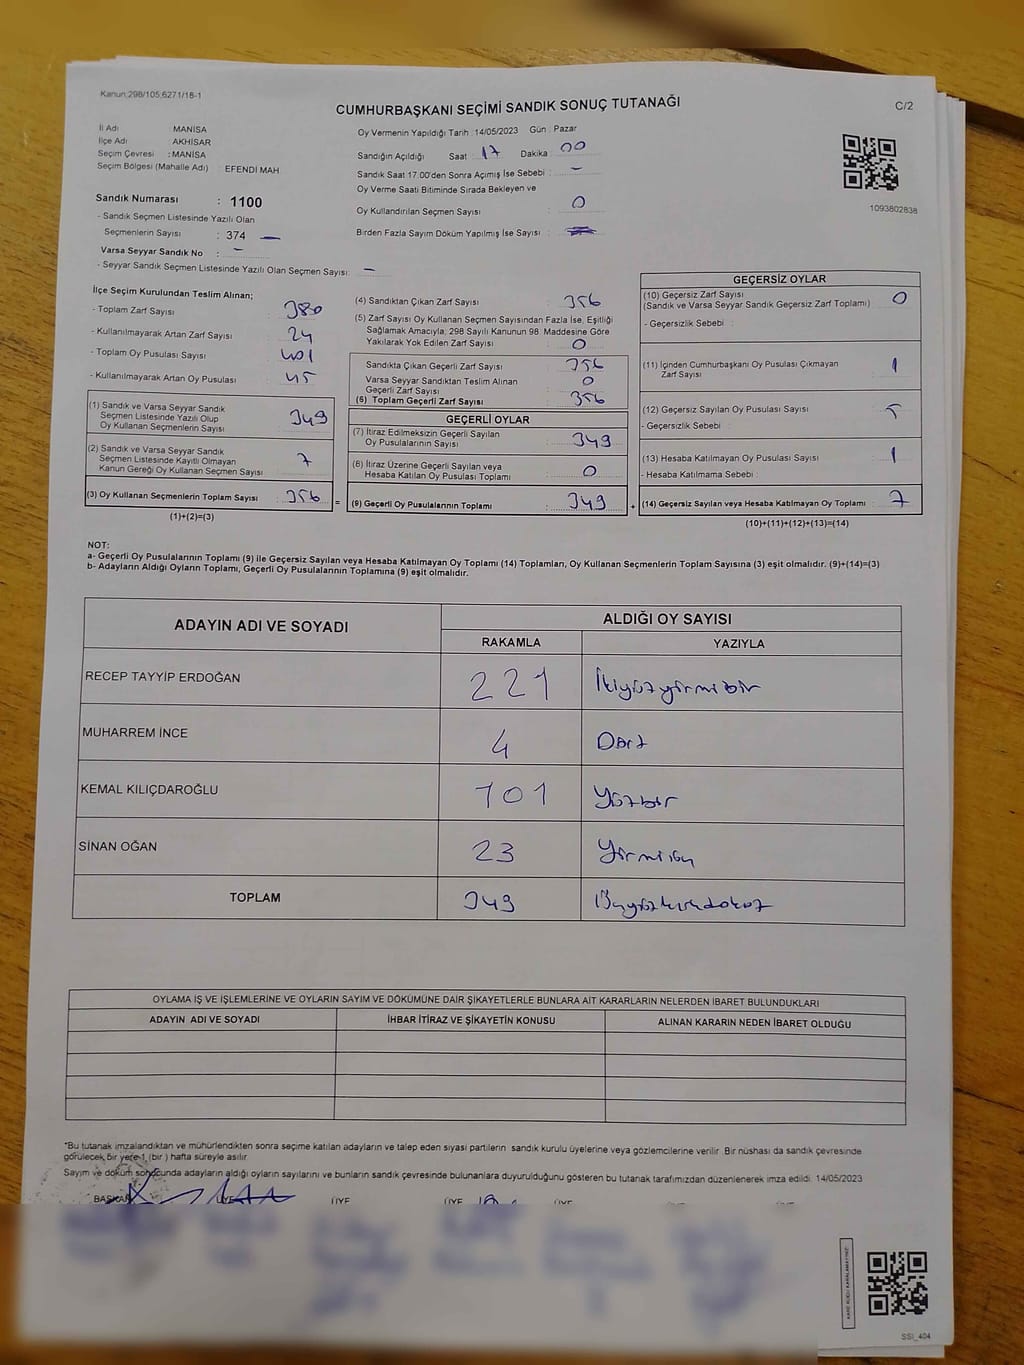 Kanun;298/105;6271/18-1
CUMHURBAŞKANI SEÇİMİ SANDIK SONUÇ TUTANAĞI
C/2
İl Adı MANİSA
İlçe Adı AKHİSAR
Seçim Çevresi : MANİSA
Seçim Bölgesi (Mahalle Adı) : EFENDİ MAH
Sandık Numarası : 1100
- Sandık Seçmen Listesinde Yazılı Olan
Seçmenlerin Sayısı : 374 —
Varsa Seyyar Sandık No : -
- Seyyar Sandık Seçmen Listesinde Yazılı Olan Seçmen Sayısı: -
Oy Vermenin Yapıldığı Tarih : 14/05/2023 Gün : Pazar
Sandığın Açıldığı Saat 17 Dakika 00
Sandık Saat 17:00'den Sonra Açımış İse Sebebi : -
Oy Verme Saati Bitiminde Sırada Bekleyen ve
Oy Kullandırılan Seçmen Sayısı : 0
Birden Fazla Sayım Döküm Yapılmış İse Sayısı :
1093802838
İlçe Seçim Kurulundan Teslim Alınan;
- Toplam Zarf Sayısı : 380
- Kullanılmayarak Artan Zarf Sayısı : 24
- Toplam Oy Pusulası Sayısı : 401
- Kullanılmayarak Artan Oy Pusulası : 45
(1) Sandık ve Varsa Seyyar Sandık
Seçmen Listesinde Yazılı Olup
Oy Kullanan Seçmenlerin Sayısı : 349
(2) Sandık ve Varsa Seyyar Sandık
Seçmen Listesinde Kayıtlı Olmayan
Kanun Gereği Oy Kullanan Seçmen Sayısı : 7
(3) Oy Kullanan Seçmenlerin Toplam Sayısı : 356 =
(1)+(2)=(3)
(4) Sandıktan Çıkan Zarf Sayısı : 356
(5) Zarf Sayısı Oy Kullanan Seçmen Sayısından Fazla İse, Eşitliği
Sağlamak Amacıyla; 298 Sayılı Kanunun 98. Maddesine Göre
Yakılarak Yok Edilen Zarf Sayısı : 0
Sandıkta Çıkan Geçerli Zarf Sayısı : 356
Varsa Seyyar Sandıktan Teslim Alınan
Geçerli Zarf Sayısı : 0
(6) Toplam Geçerli Zarf Sayısı : 356
GEÇERLİ OYLAR
(7) İtiraz Edilmeksizin Geçerli Sayılan
Oy Pusulalarının Sayısı : 349
(8) İtiraz Üzerine Geçerli Sayılan veya
Hesaba Katılan Oy Pusulası Toplamı : 0
(9) Geçerli Oy Pusulalarının Toplamı : 349 +
GEÇERSİZ OYLAR
(10) Geçersiz Zarf Sayısı
(Sandık ve Varsa Seyyar Sandık Geçersiz Zarf Toplamı) : 0
- Geçersizlik Sebebi :
(11) İçinden Cumhurbaşkanı Oy Pusulası Çıkmayan
Zarf Sayısı : 1
(12) Geçersiz Sayılan Oy Pusulası Sayısı : 5
- Geçersizlik Sebebi :
(13) Hesaba Katılmayan Oy Pusulası Sayısı : 1
- Hesaba Katılmama Sebebi :
(14) Geçersiz Sayılan veya Hesaba Katılmayan Oy Toplamı : 7
(10)+(11)+(12)+(13)=(14)
NOT:
a- Geçerli Oy Pusulalarının Toplamı (9) ile Geçersiz Sayılan veya Hesaba Katılmayan Oy Toplamı (14) Toplamları, Oy Kullanan Seçmenlerin Toplam Sayısına (3) eşit olmalıdır. (9)+(14)=(3)
b- Adayların Aldığı Oyların Toplamı, Geçerli Oy Pusulalarının Toplamına (9) eşit olmalıdır.
ADAYIN ADI VE SOYADI ALDIĞI OY SAYISI
RAKAMLA YAZIYLA
RECEP TAYYİP ERDOĞAN 221 İkiyüzyirmibir
MUHARREM İNCE 4 Dört
KEMAL KILIÇDAROĞLU 101 Yüzbir
SİNAN OĞAN 23 Yirmiüç
TOPLAM 349 Üçyüzkırkdokuz
OYLAMA İŞ VE İŞLEMLERİNE VE OYLARIN SAYIM VE DÖKÜMÜNE DAİR ŞİKAYETLERLE BUNLARA AİT KARARLARIN NELERDEN İBARET BULUNDUKLARI
ADAYIN ADI VE SOYADI İHBAR İTİRAZ VE ŞİKAYETİN KONUSU ALINAN KARARIN NEDEN İBARET OLDUĞU
*Bu tutanak imzalandıktan ve mühürlendikten sonra seçime katılan adayların ve talep eden siyasi partilerin sandık kurulu üyelerine veya gözlemcilerine verilir. Bir nüshası da sandık çevresinde
görülecek bir yere 1 (bir ) hafta süreyle asılır.
Sayım ve döküm sonucunda adayların aldığı oyların sayılarını ve bunların sandık çevresinde bulunanlara duyurulduğunu gösteren bu tutanak tarafımızdan düzenlenerek imza edildi. 14/05/2023
BAŞKAN ÜYE ÜYE ÜYE ÜYE ÜYE
KARE KODU KARALAMAYINIZ!
SSI_404